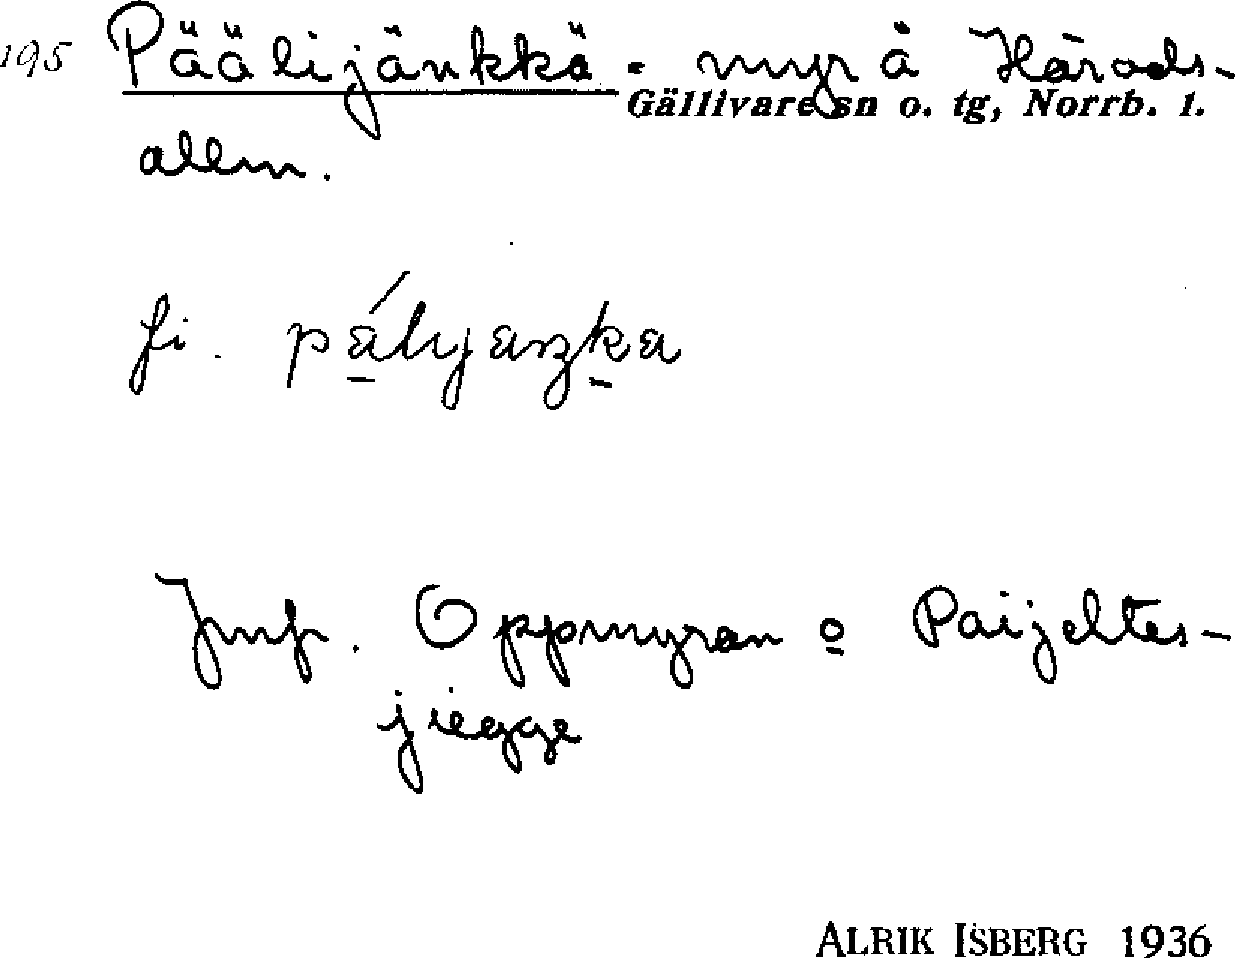 195 Päälijänkkä - myr å Härads-
Gällivare sn o. tg, Norrb. l.
allm.
fi.
Jmf. Oppmyran o Paijeltes-
jiegge
ALRIK ISBERG 1936